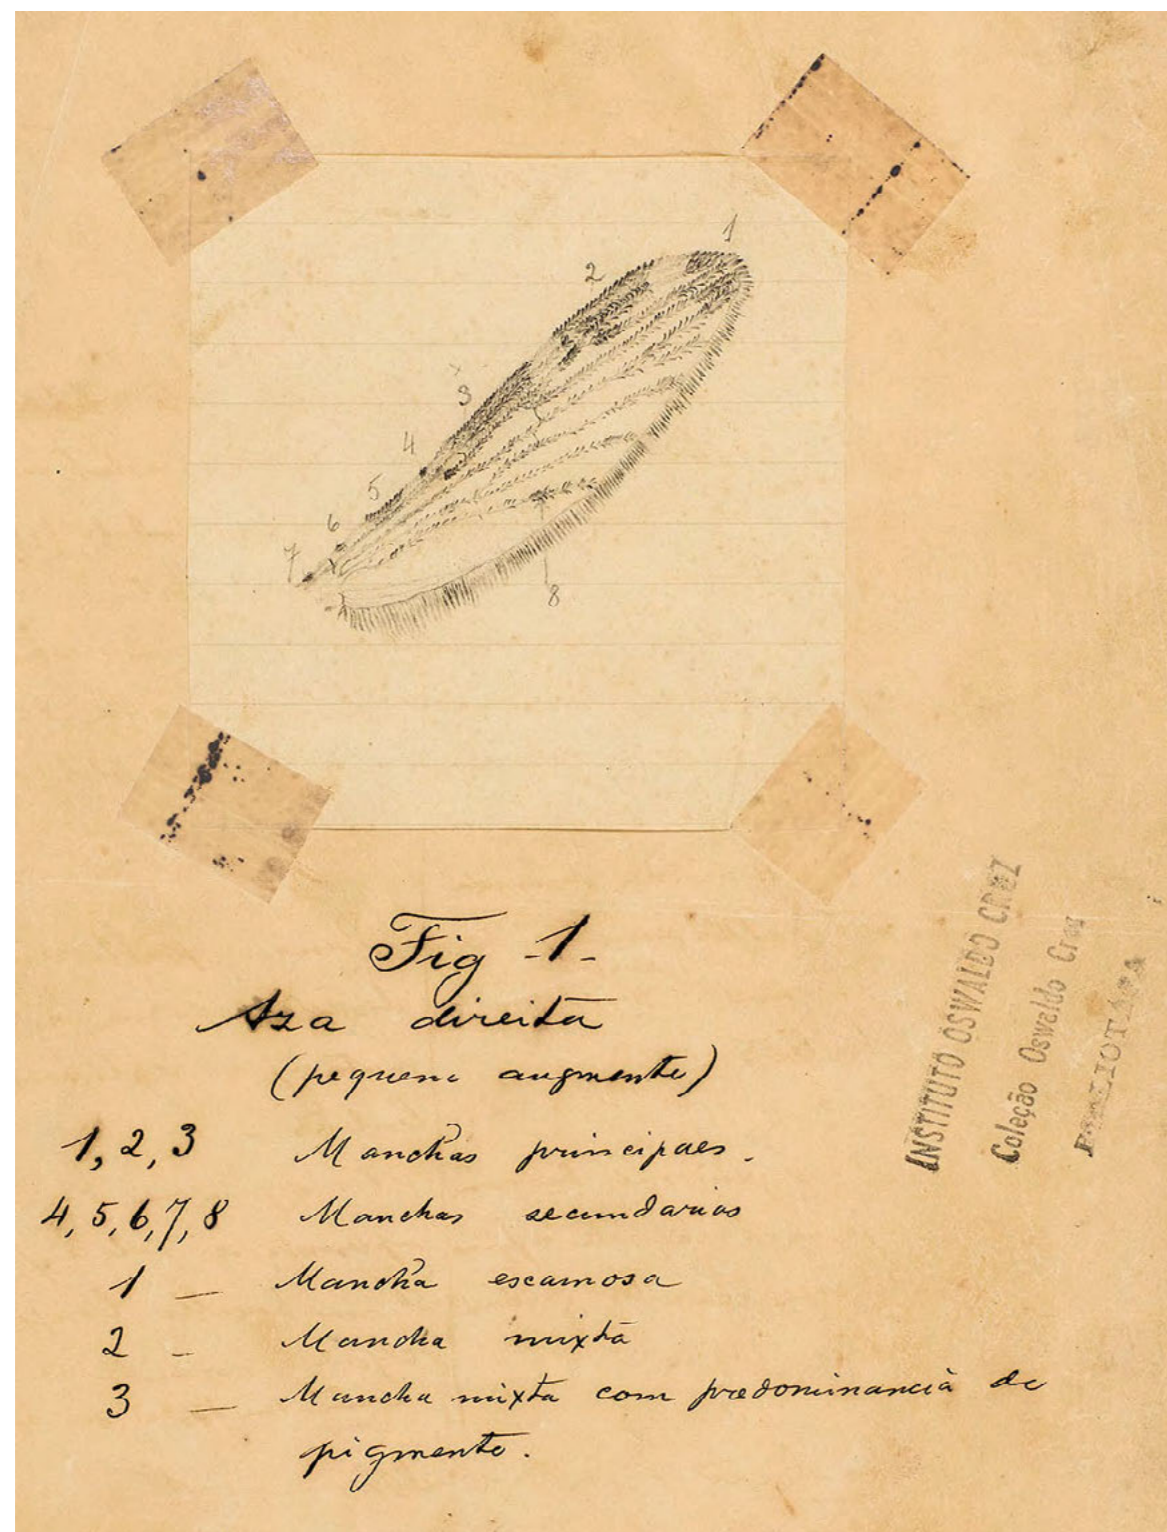 1
2
3
4
5
6
7
8
Fig -1-
Aza direita
(pequeno augmento)
1, 2, 3 Manchas principaes.
4, 5, 6, 7, 8 Manchas secundarias
1 — Mancha escamosa
2 - Mancha mixta
3 — Mancha mixta com predominancia de
pigmento.
INSTITUTO OSWALDO CRUZ
Coleção Oswaldo Cruz